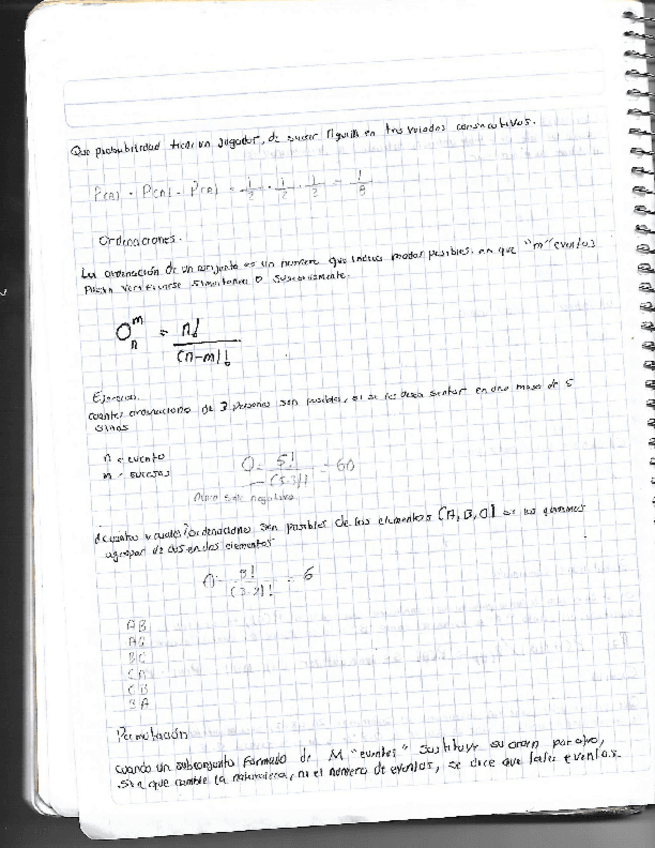 Que probabilidad tiene un Jugador, de sacar Aguila en tres volados consecutivos.
P(A) · P(A) · P(A) = 1/2 · 1/2 · 1/2 = 1/8
Ordenaciones.
La ordenación de un conjunto es un numero que indica modos posibles, en que "m" eventos
Pueden verificarse simultanea o sucesivamente.
O m n = n! / (n-m)!
Ejercicios.
cuantas ordenaciones de 3 Personas son posibles, si se les desea sentar en una mesa de 5
sillas
n = evento
m = sucesos
O = 5! / (5-3)! = 60
Nunca sale negativo
¿Cuantas y cuales? ordenaciones son posibles de los elementos [A, B, C] si los queremos
agrupar de dos en dos elementos
O = 3! / (3-2)! = 6
AB
AC
BC
CA
CB
BA
Permutación
cuando un subconjunto Formado de M "eventos" Sustituye su orden por otro,
sin que cambie la naturaleza, ni el número de eventos, se dice que tales eventos.